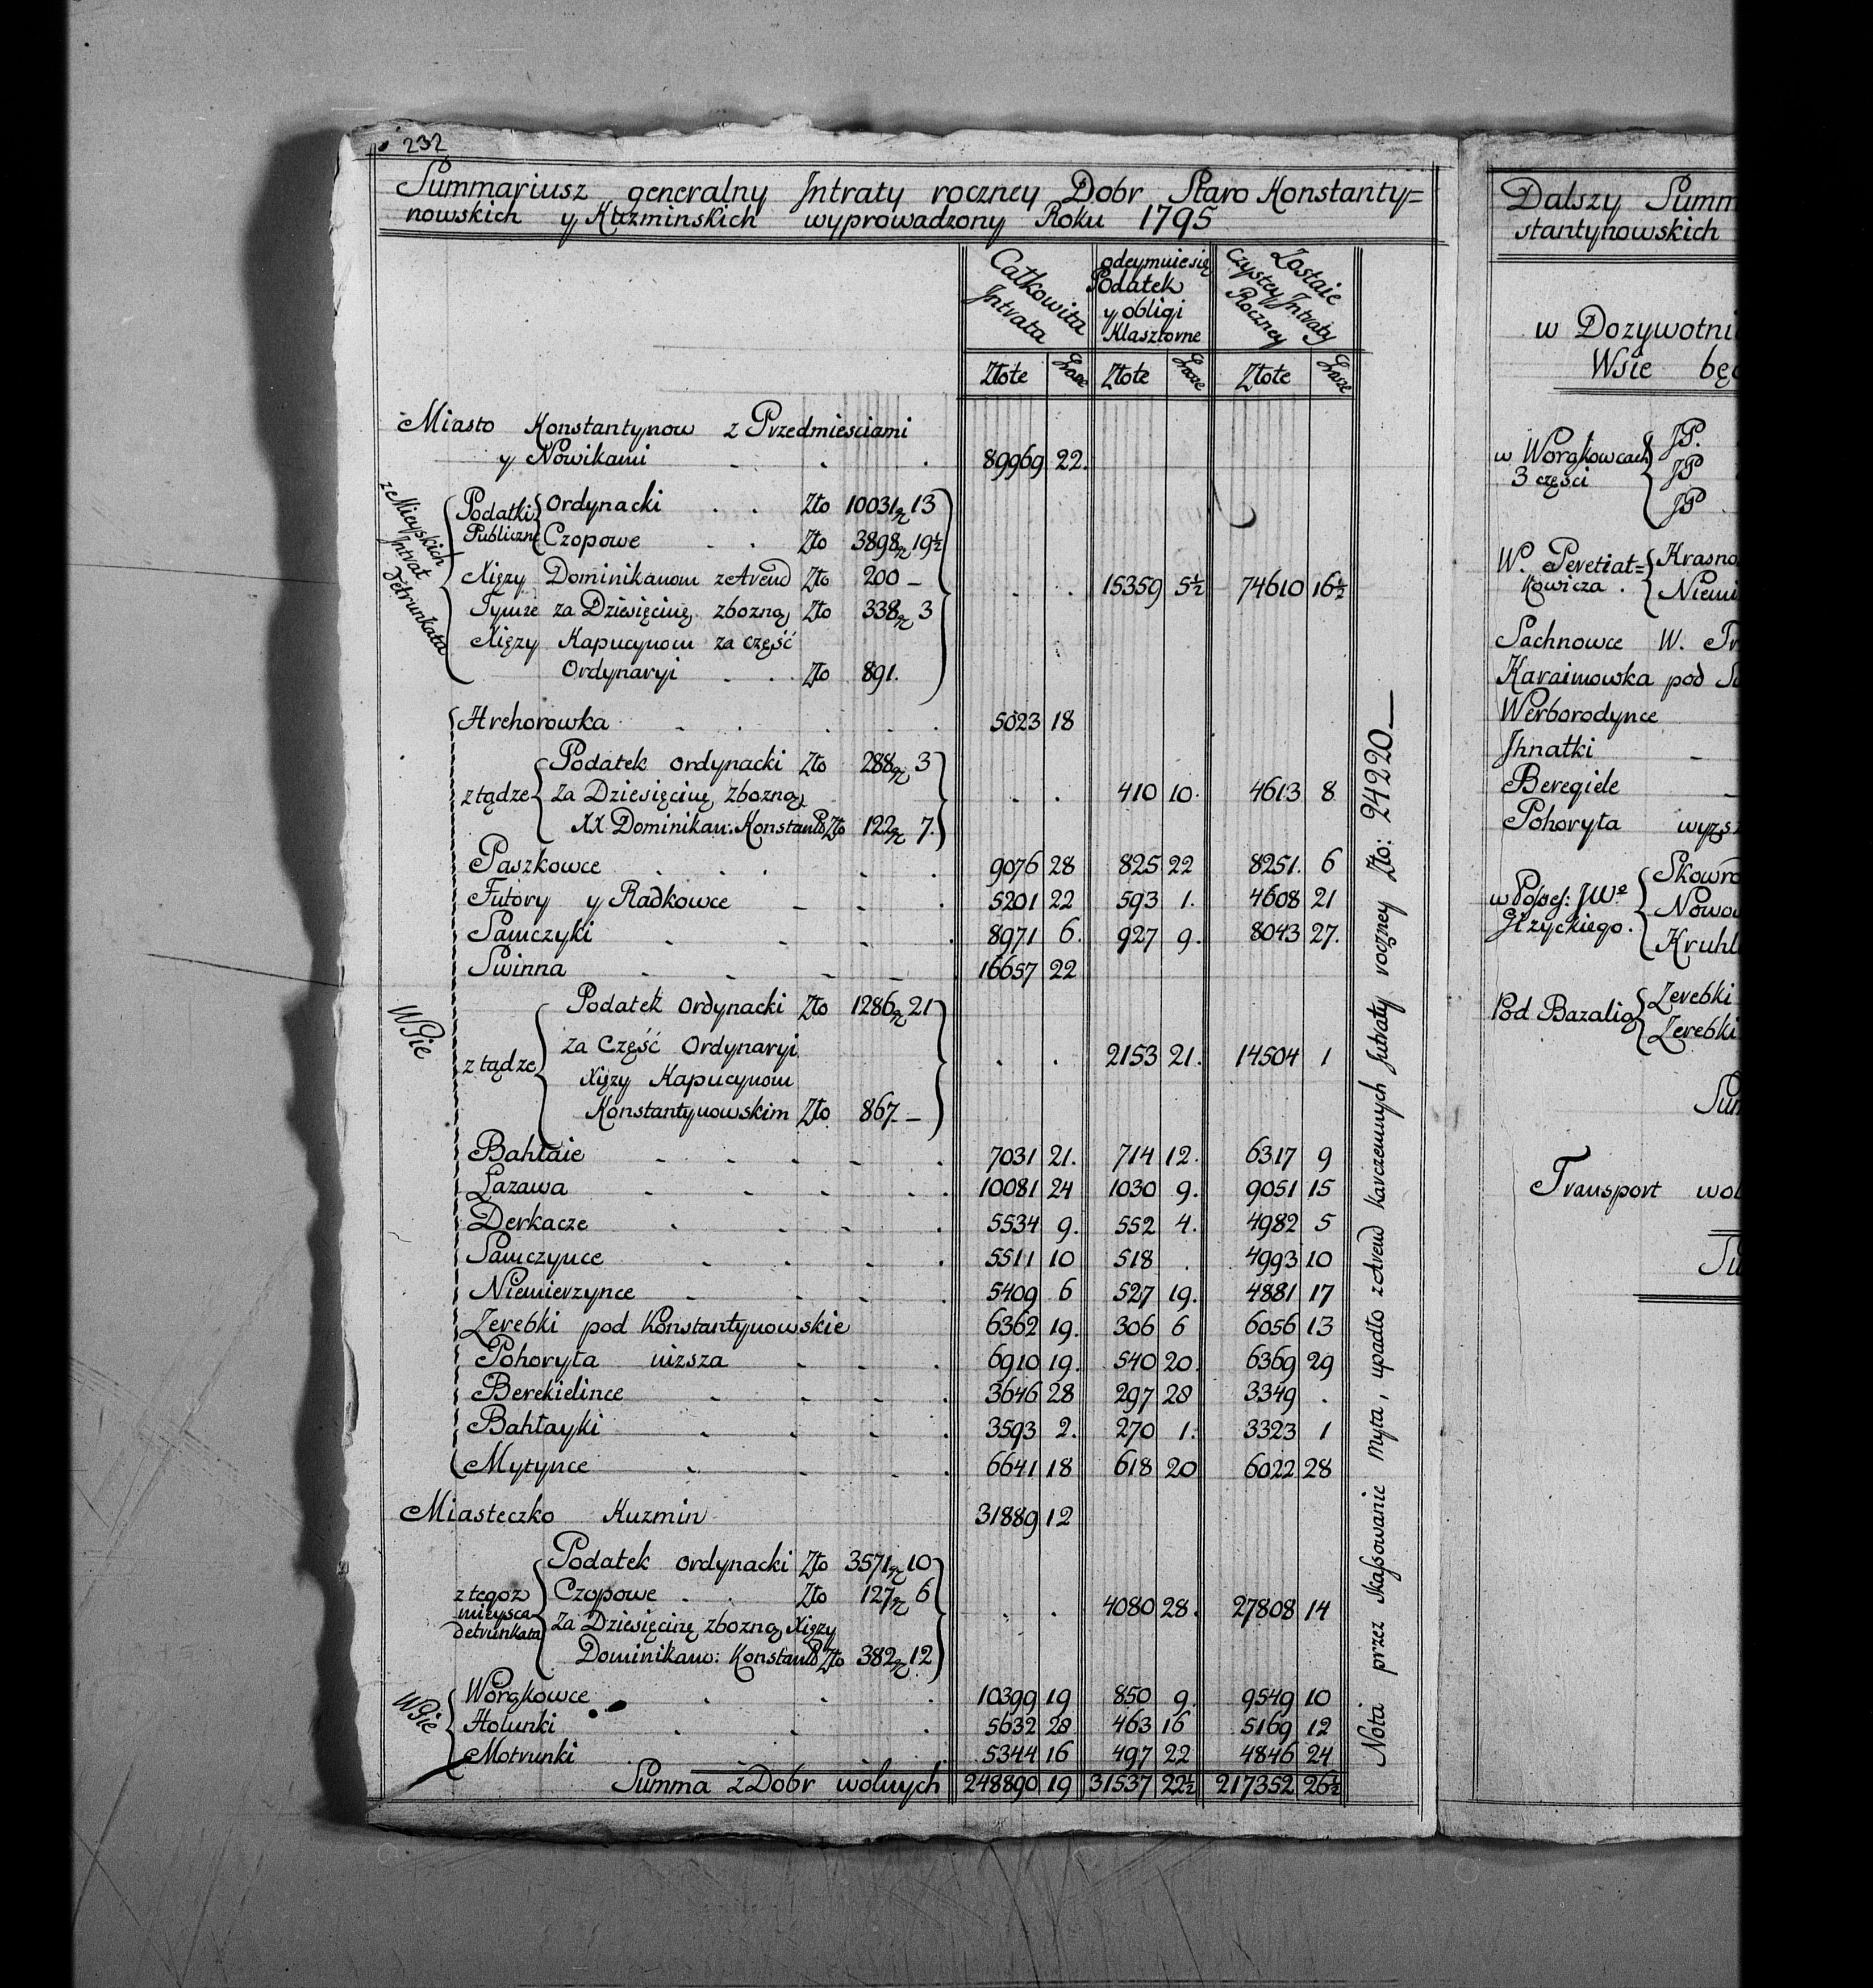 232
Summariusz generalny Intraty roczney Dobr Staro Konstanty=
nowskich y Kuzminskich wyprowadzony Roku 1795
Całkowita Intrata
odeymuie się Podatek y obligi Klasztorne
Zostaie Czystey Intraty Roczney
Złote Grosze Złote Grosze Złote Grosze
Miasto Konstantynow z Przedmiesciami
y Nowikami 89969 22.
z Mieyskich Intrat detrunkata
Podatki Publiczne
Ordynacki Zło 10031 gr 13
Czopowe Zło 3898 gr 19½
Xięzy Dominikanom z Arend Zło 200 — 15359 5½ 74610 16½
Tymze za Dziesięcinę zbozną Zło 338 gr 3
Xięzy Kapucynom za część
Ordynaryi Zło 891.
Wsie
Hrehorowka 5023 18
Podatek ordynacki Zło 288 gr 3
z tądze Za Dziesięcinę Zbozną 410 10. 4613 8
XX Dominikan: Konstant Zło 122 gr 7.
Paszkowce 9076 28 825 22 8251. 6
Futory y Radkowce 5201 22 593 1. 4608 21
Samczyki 8971 6. 927 9. 8043 27.
Swinna 16657 22
Podatek Ordynacki Zło 1286 gr 21
z tądze za Część Ordynaryi 2153 21. 14504 1
Xięzy Kapucynom
Konstantynowskim Zło 867. —
Bahłaie 7031 21. 714 12. 6317 9
Łazawa 10081 24 1030 9. 9051 15
Derkacze 5534 9. 552 4. 4982 5
Samczynce 5511 10 518 . 4993 10
Niemierzynce 5409 6 527 19. 4881 17
Zerebki pod Konstantynowskie 6362 19. 306 6 6056 13
Pohoryła nizsza 6910 19. 540 20. 6369 29
Berekielince 3646 28 297 28 3349 .
Bahłayki 3593 2. 270 1. 3323 1
Mytynce 6641 18 618 20 6022 28
Miasteczko Kuzmin 31889 12
z tegoz mieysca detrunkata
Podatek ordynacki Zło 3571 gr 10
Czopowe Zło 127 gr 6 4080 28. 27808 14
Za Dziesięcinę zbozną Xięzy
Dominikano: Konstant Zło 382 gr 12
Wsie
Worgkowce 10399 19 850 9. 9549 10
Hołunki 5632 28 463 16 5169 12
Motrunki 5344 16 497 22 4846 24
Summa z Dobr wolnych 248890 19 31537 22½ 217352 26½
Nota przez skassowanie Myta, upadło z Arend karczemnych Intraty roczney Zło: 24220 —
Dalszy Summ
stantynowskich
w Dozywotni
Wsie będ
w Worgkowcach JP.
3 części JP
JP
W. Peretiat= Krasno
kowicza . Niemi
Sachnowce W.
Karaimowka pod
Werborodynce
Ihnatki
Beregiele
Pohoryła wyzsz
w Posses: JWo
Giżyckiego.
Skowro
Nowo
Kruhl
Pod Bazalią Zerebki
Zerebki
Sum
Transport wol
Su